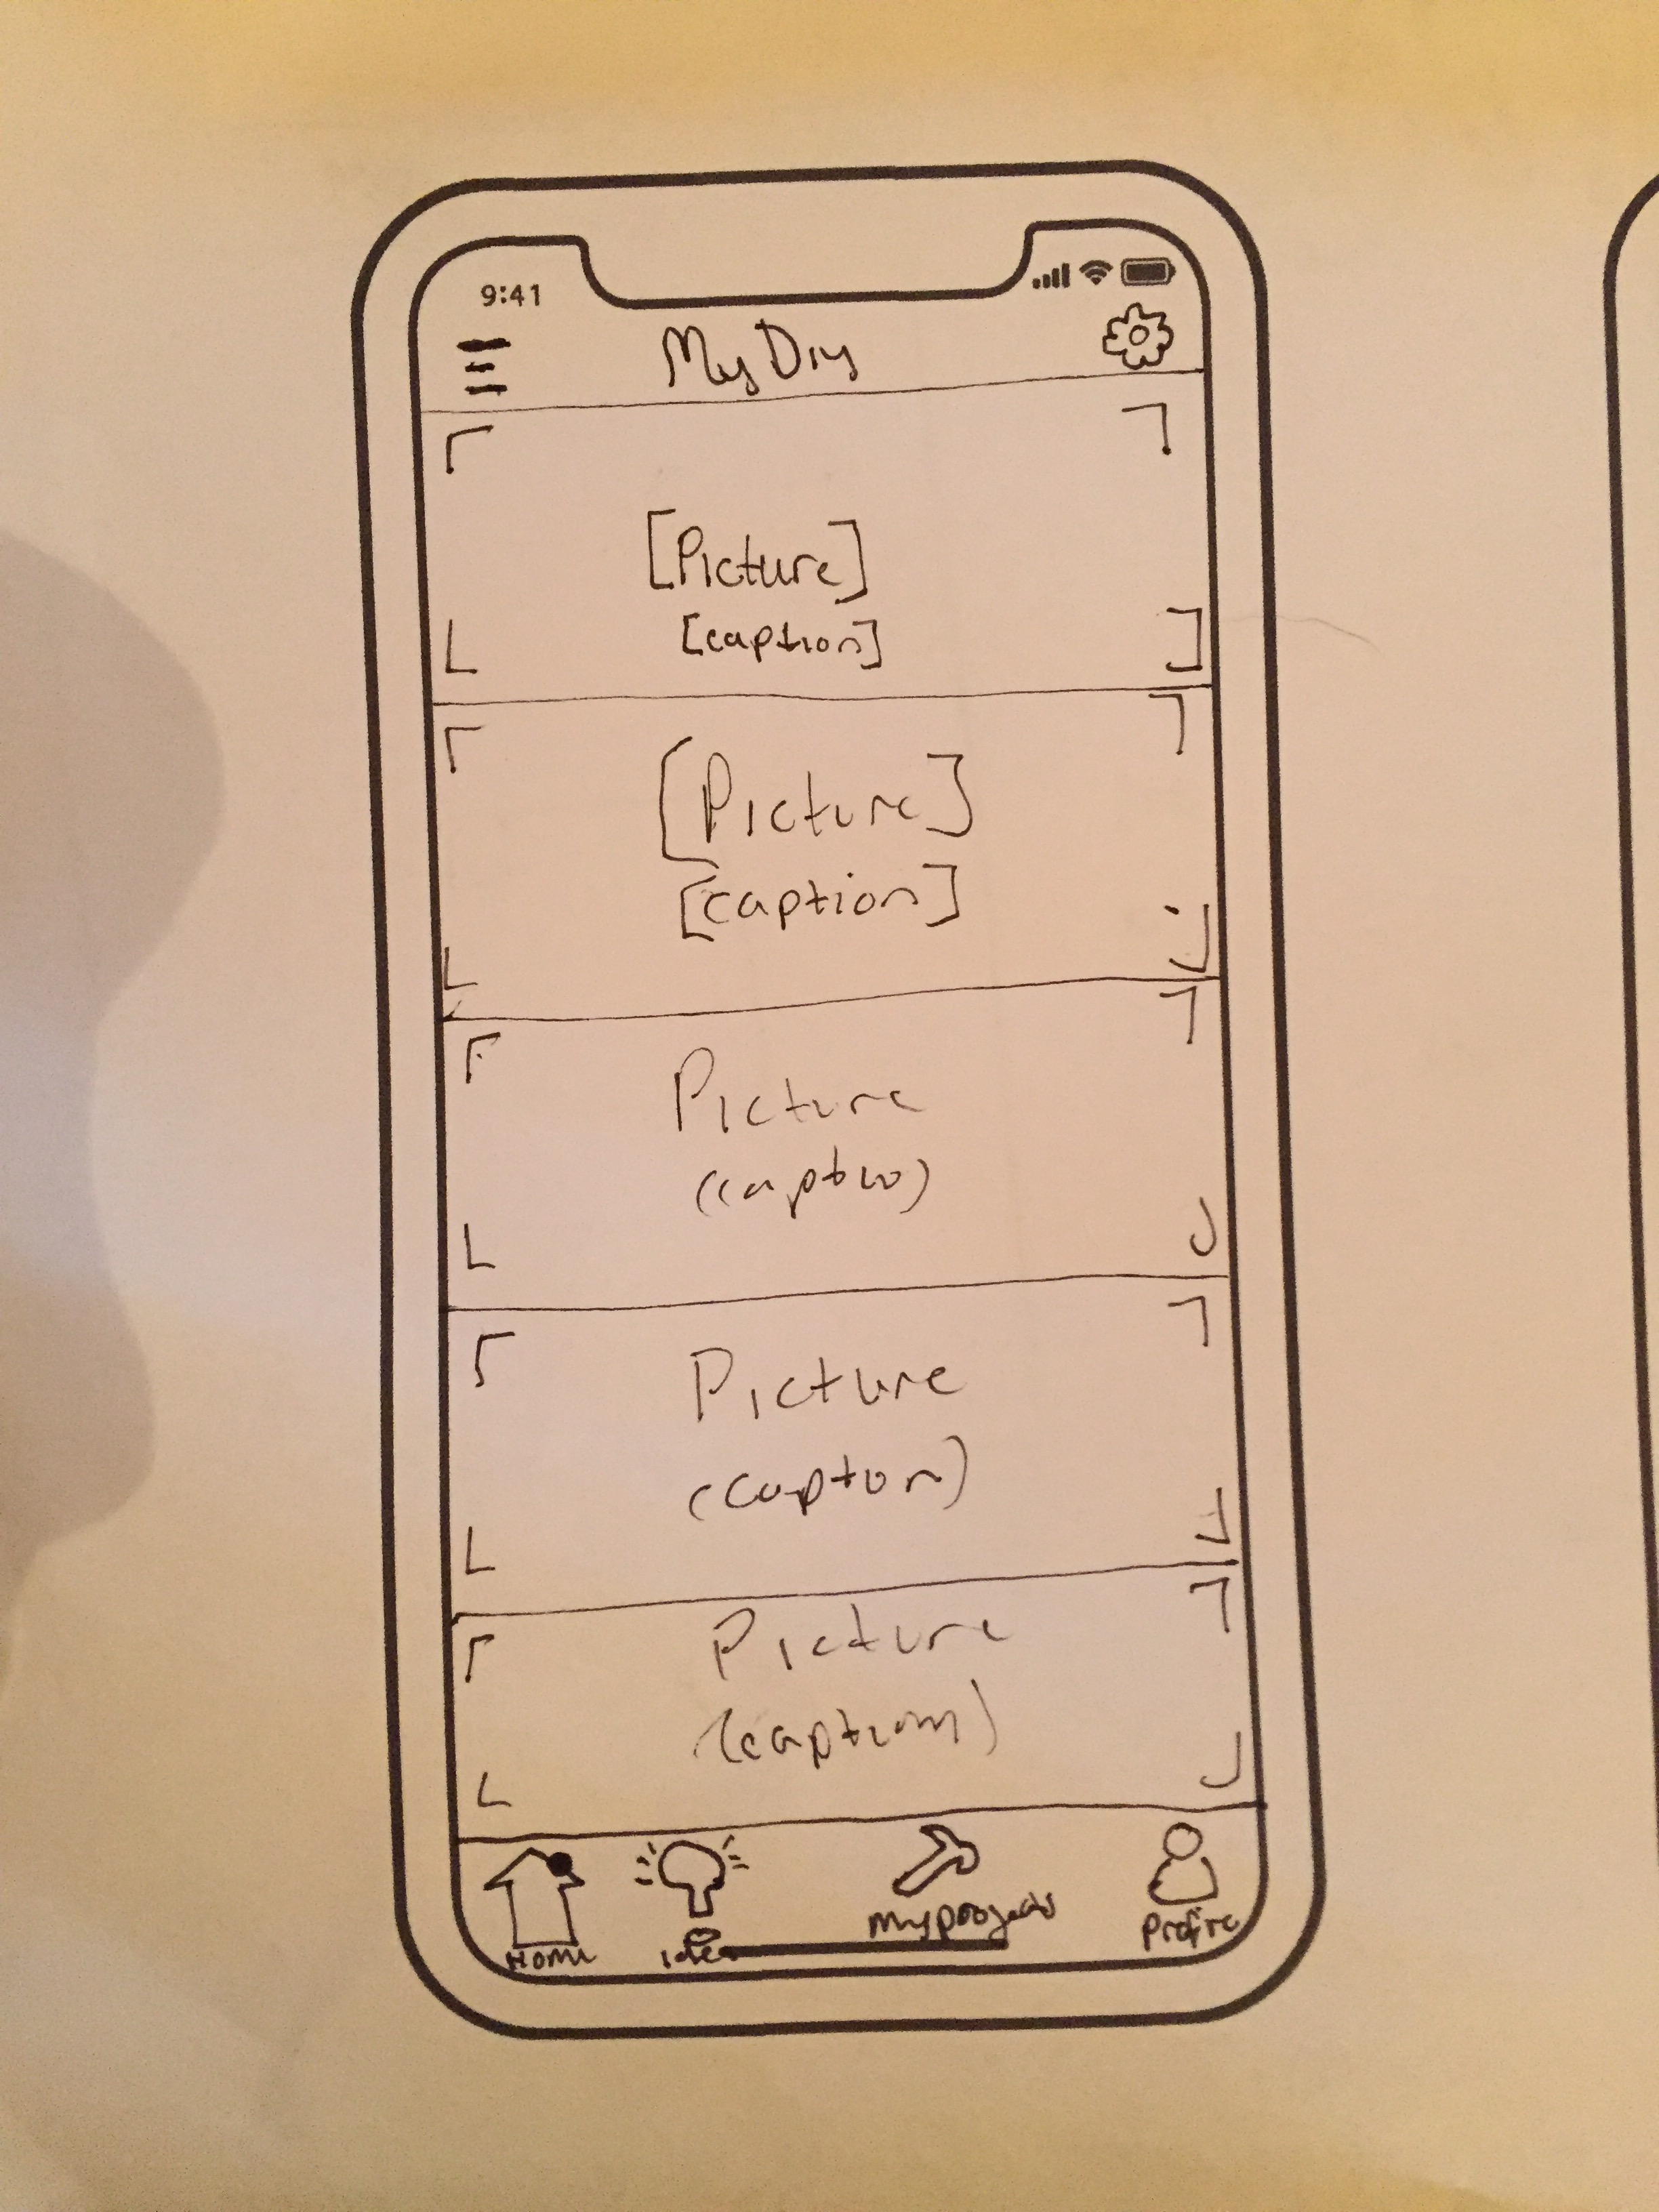 9:41
My Diy
[Picture]
[caption]
[Picture]
[caption]
Picture
Picture
(caption)
Picture
(caption)
Home Idea My projects Profile